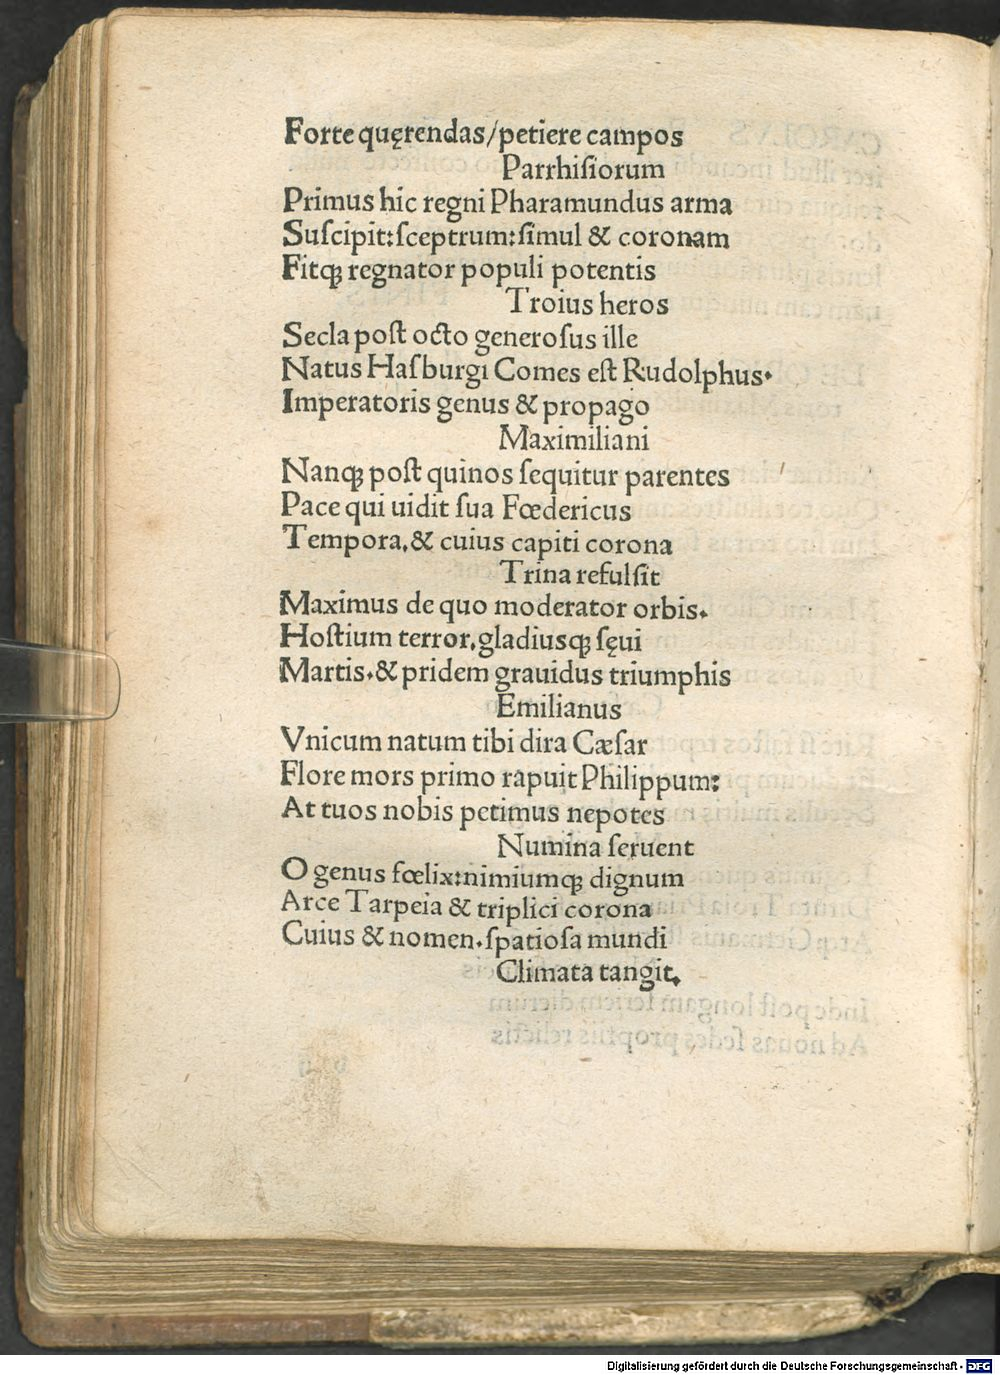 Forte quęrendas/petiere campos
Parrhiſiorum
Primus hic regni Pharamundus arma
Suſcipit:ſceptrum:ſimul & coronam
Fitqꝫ regnator populi potentis
Troius heros
Secla poſt octo generoſus ille
Natus Haſburgi Comes eſt Rudolphus.
Imperatoris genus & propago
Maximiliani
Nanqꝫ poſt quinos ſequitur parentes
Pace qui uidit ſua Fœdericus
Tempora,& cuius capiti corona
Trina refulſit
Maximus de quo moderator orbis.
Hoſtium terror,gladiusqꝫ ſęui
Martis.& pridem grauidus triumphis
Emilianus
Vnicum natum tibi dira Cæſar
Flore mors primo rapuit Philippum:
At tuos nobis petimus nepotes
Numina ſeruent
O genus fœlix:nimiumqꝫ dignum
Arce Tarpeia & triplici corona
Cuius & nomen.ſpatioſa mundi
Climata tangit.
Digitalisierung gefördert durch die Deutsche Forschungsgemeinschaft - DFG